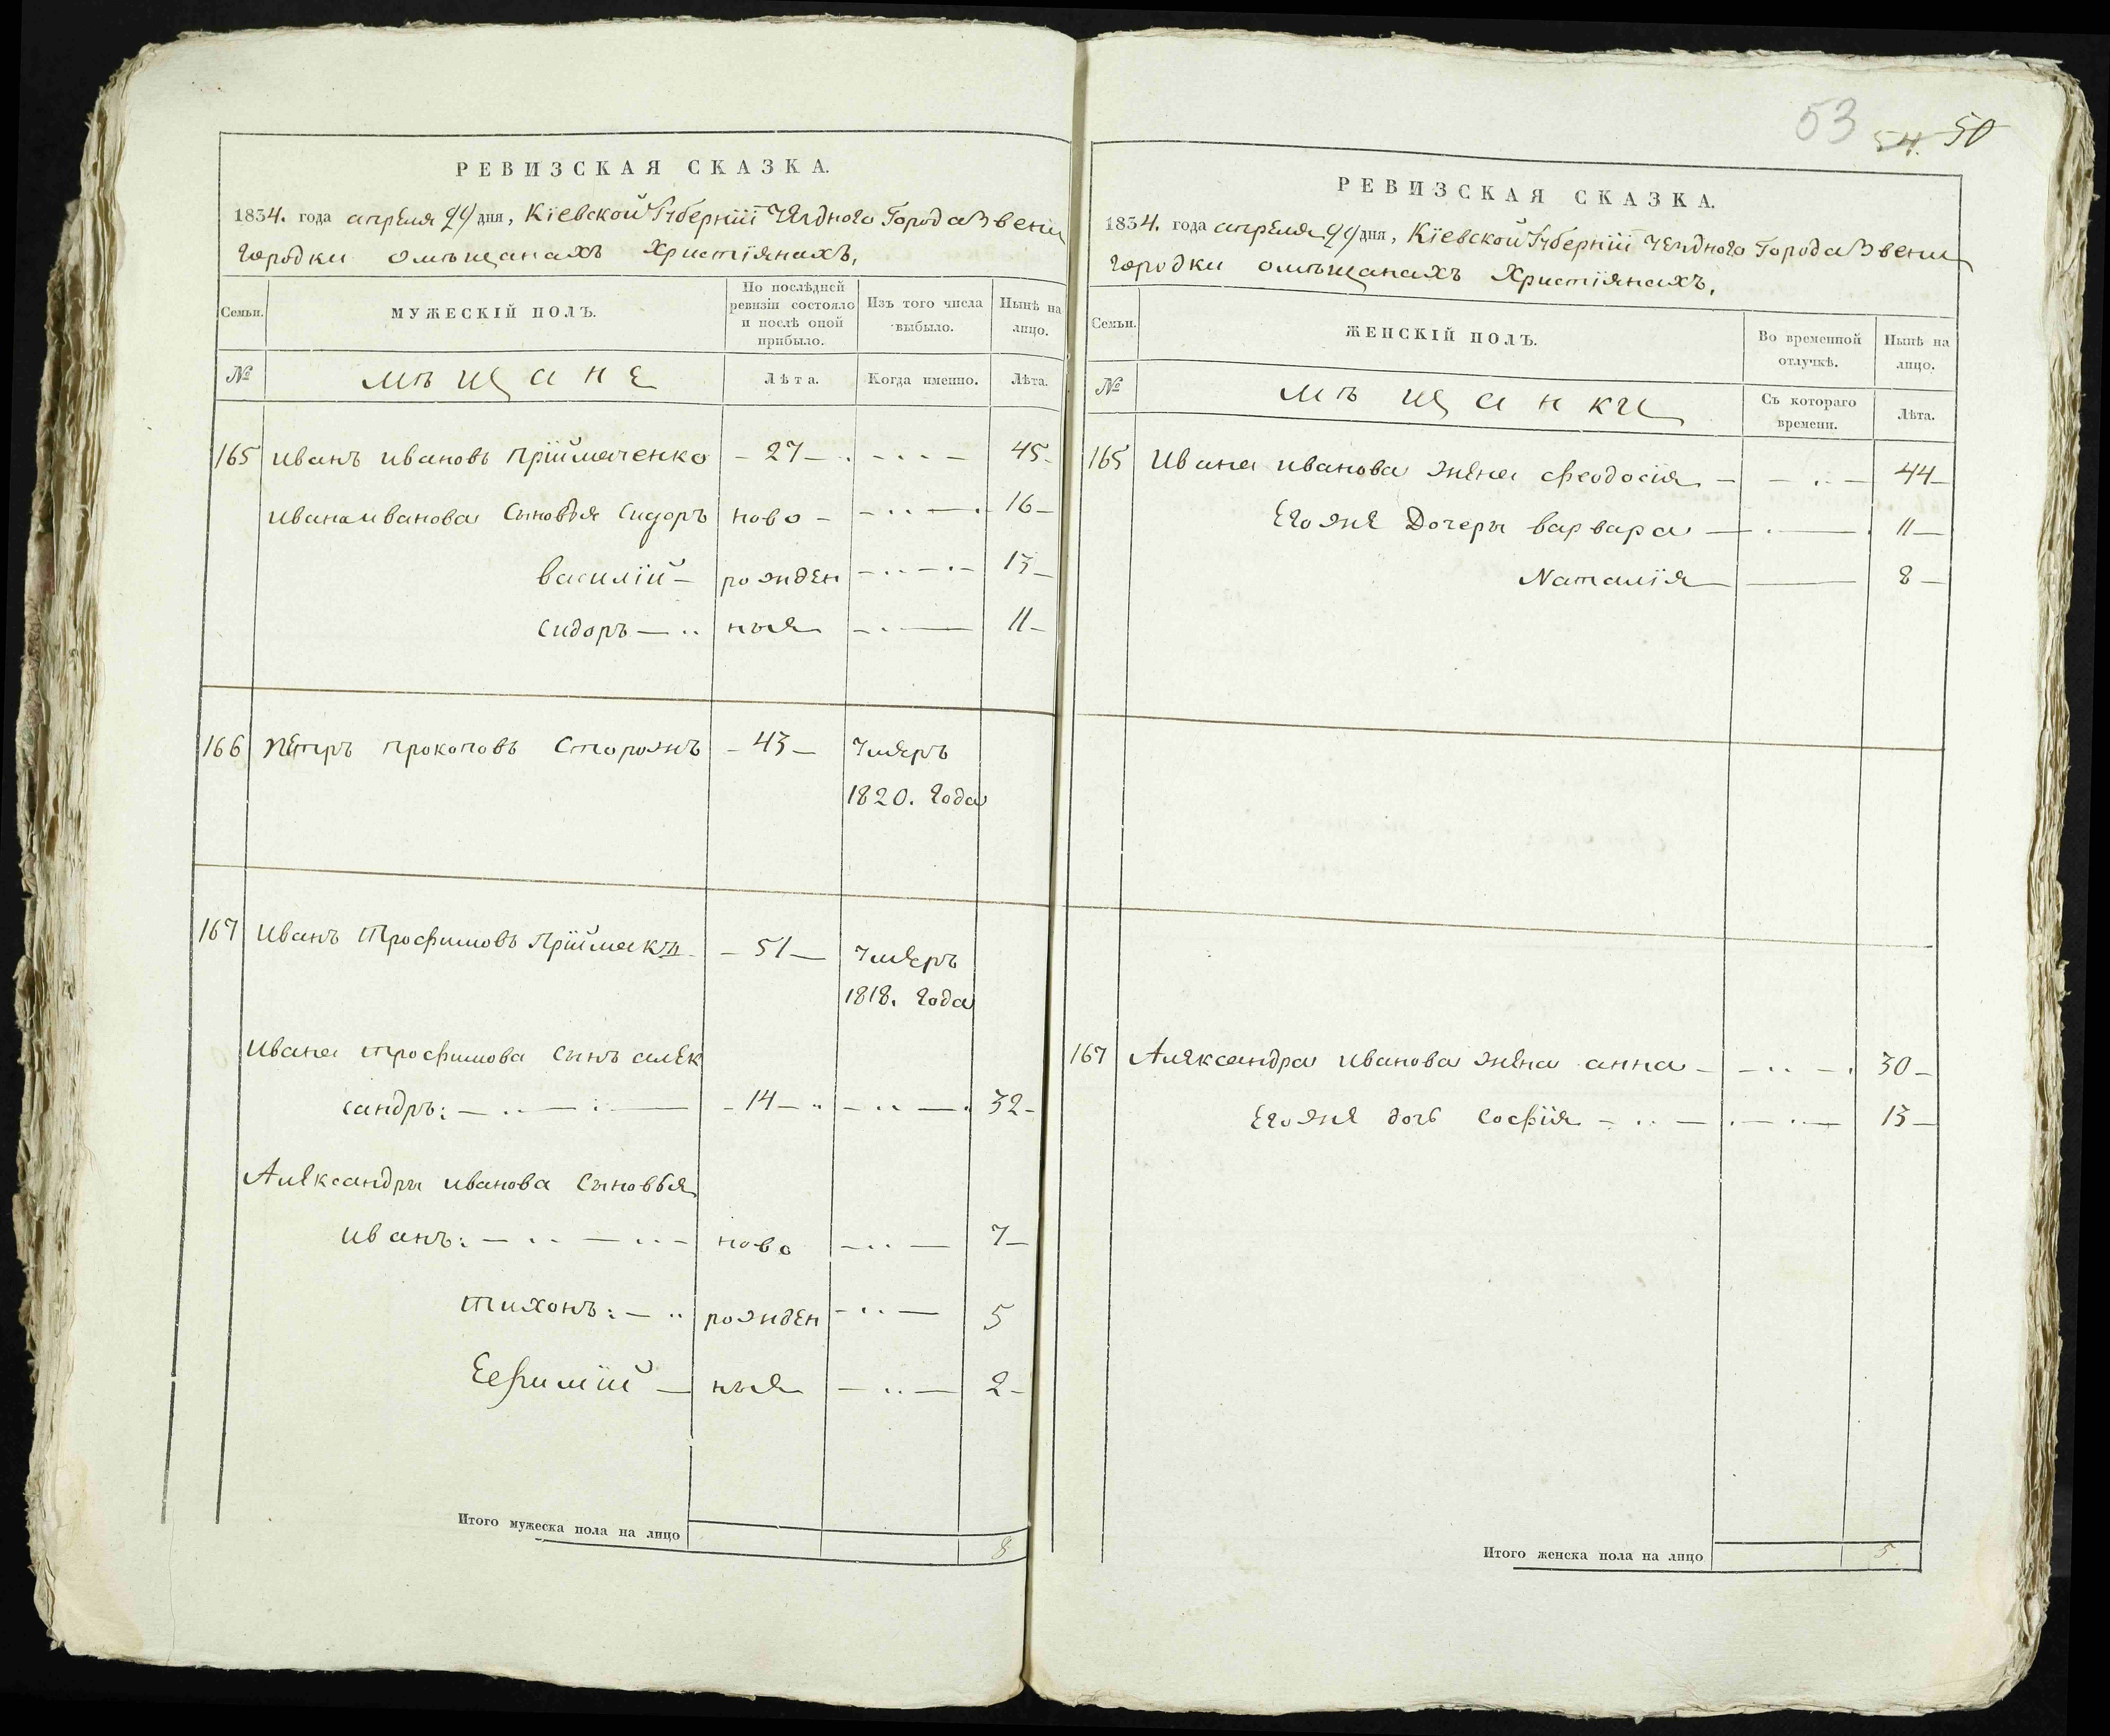 53 54. 50
РЕВИЗСКАЯ СКАЗКА.
1834. года апреля 29 дня, Кіевской Губерніи Уездного Города Звени
городки омѣщанахъ Христіянахъ,
Семьи.
МУЖЕСКІЙ ПОЛЪ.
По послѣдней ревизіи состояло и послѣ оной прибыло.
Изъ того числа выбыло.
Нынѣ на лицо.
№
мѣщане
Лѣта.
Когда именно.
Лѣта.
165 Иванъ ивановъ прііймаченко – 27 – 45
Ивана иванова сыновья Сидоръ ново – 16 –
василій – рожден 13 –
сидоръ – ныя 11 –
166 Петръ прокоповъ Сторожъ – 43 – Умеръ
1820. года
167 Иванъ Трофимовъ Прііймакъ – 51 – Умеръ
1818. года
Ивана трофимова сынъ алек
сандръ: – 14 – 32 –
Александры иванова сыновья
иванъ: – ново 7 –
тихонъ: – рожден 5
Ефимій – ныя 2 –
Итого мужеска пола на лицо 8
РЕВИЗСКАЯ СКАЗКА.
1834. года апреля 29 дня, Кіевской Губерніи Уездного Города Звени
городки омѣщанахъ Христіянахъ,
Семьи.
ЖЕНСКІЙ ПОЛЪ.
Во временной отлучкѣ.
Нынѣ на лицо.
№
мѣщанки
Съ котораго времени.
Лѣта.
165 Ивана иванова жена феодосія – 44 –
Егоже Дочеры варвара – 11 –
Наталія – 8 –
167 Александра иванова жена анна – 30 –
Егоже дочь софія – 13 –
Итого женска пола на лицо 5